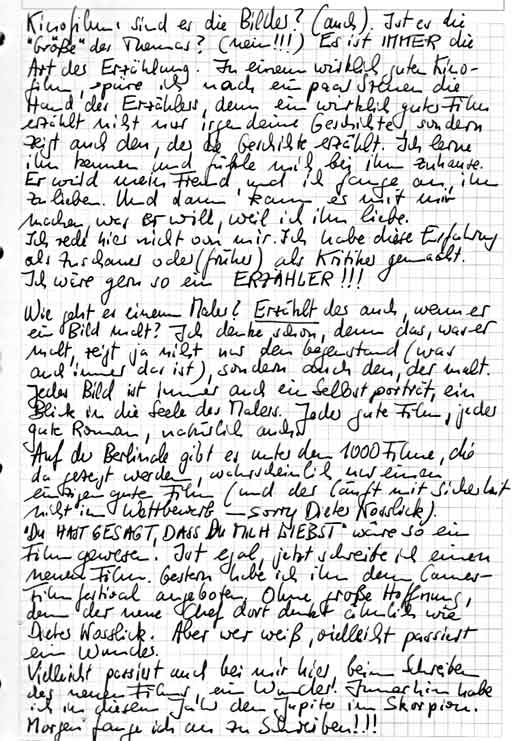 Kinofilm: sind es die Bilder? (auch). Ist es die
"Größe" des Themas? (nein!!!) Es ist IMMER die
Art der Erzählung. In einem wirklich guten Kino-
film, spüre ich nach ein paar Szenen die
Hand des Erzählers, denn ein wirklich guter Film
erzählt nicht nur irgendeine Geschichte, sondern
zeigt auch den, der die Geschichte erzählt. Ich lerne
ihn kennen und fühle mich bei ihm zuhause.
Er wird mein Freund und ich fange an, ihn
zu lieben. Und dann kann er mit mir
machen was er will, weil ich ihn liebe.
Ich rede hier nicht von mir. Ich habe diese Erfahrung
als Zuschauer oder (früher) als Kritiker gemacht.
Ich wäre gern so ein ERZÄHLER!!!
Wie geht es einem Maler? Erzählt der auch, wenn er
ein Bild malt? Ich denke schon, denn das, was er
malt, zeigt ja nicht nur den Gegenstand (was
auch immer das ist), sondern auch den, der malt.
Jedes Bild ist immer auch ein Selbstporträt, ein
Blick in die Seele des Malers. Jeder gute Film, jeder
gute Roman, natürlich auch.
Auf der Berlinale gibt es unter den 1000 Filme, die
da gezeigt werden, wahrscheinlich nur einen
einzigen guten Film (und der läuft mit Sicherheit
nicht im Wettbewerb – sorry Dieter Kosslick).
"DU HAST GESAGT, DASS DU MICH LIEBST" wäre so ein
Film gewesen. Ist egal, jetzt schreibe ich einen
neuen Film. Gestern habe ich ihn dem Cannes-
Filmfestival angeboten. Ohne große Hoffnung,
denn der neue Chef dort denkt ähnlich wie
Dieter Kosslick. Aber wer weiß, vielleicht passiert
ein Wunder.
Vielleicht passiert auch bei mir hier, beim Schreiben
des neuen Films, ein Wunder. Immerhin habe
ich in diesem Jahr den Jupiter im Skorpion.
Morgen fange ich an zu Schreiben!!!